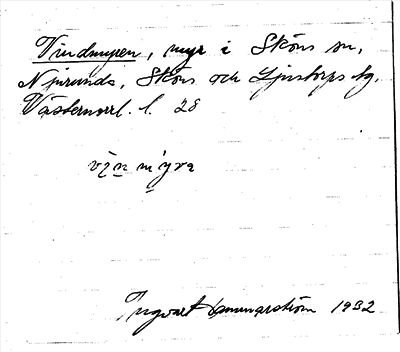 Vindmyren, myr i Sköns sn,
Njurunda, Sköns och Ljustorps tg.
Västernorrl. l. 28
myra
Ingvart Hammarström 1932